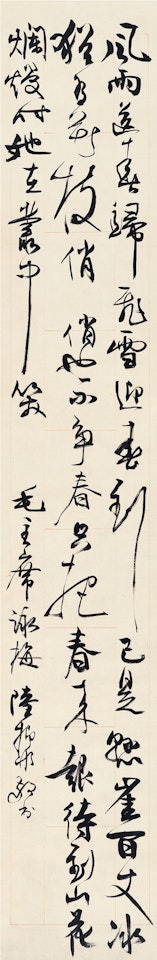 風雨送春歸飛雪迎春到已是懸崖百丈冰
猶有花枝俏俏也不争春只把春来報待到山花
爛熳时她在叢中笑
毛主席詠梅 陸抑非敬书